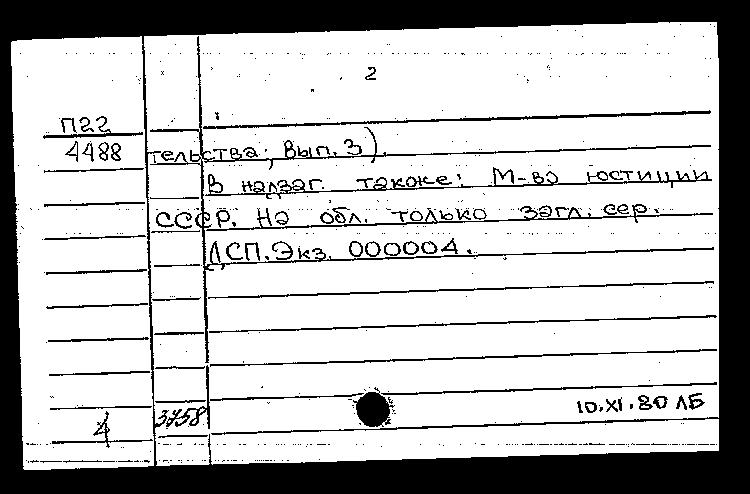 2
П22
4488 тельства; Вып. 3).
В надзаг. также: М-во юстиции
СССР. На обл. только загл. сер.
ДСП. Экз. 000004.
4 3758 10.XI.80 ЛБ